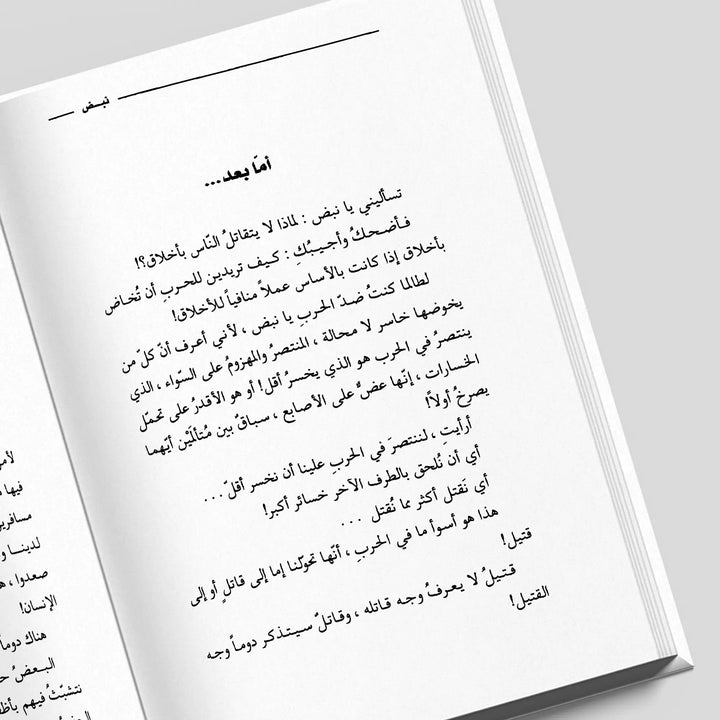 نبـض
أمّا بعد...
تسأليني يا نبض : لماذا لا يتقاتلُ النّاس بأخلاق؟!
فـأضـحـكُ وأجـيـبُـكِ : كـيـف تريدين للحـربِ أن تُخـاض
بأخلاق إذا كانت بالأساس عملاً منافياً للأخلاق!
لطالما كنتُ ضـدّ الحربِ يا نبض ، لأني أعرف أنّ كلّ من
يخوضها خاسر لا محالة ، المنتصرُ والمهزومُ على السّواء ، الذي
ينتصرُ في الحرب هو الذي يخسرُ أقل! أو هو الأقدرُ على تحمّل
الخسارات ، إنّها عضٌّ على الأصابع ، سباقٌ بين مُتألّمَيْن أيّهما
يصرخُ أولاً!
أرأيتِ ، لننتصرَ في الحربِ علينا أن نخسر أقلّ ...
أي أن نُلحق بالطرف الآخر خسائر أكبر!
أي نَقتل أكثر مما نُقتل ...
هذا هو أسوأ ما في الحربِ ، أنّها تحوّلنا إما إلى قاتلٍ أو إلى
قتيل!
قـتـيـلٌ لا يـعـرفُ وجـه قـاتله ، وقـاتلٌ سـيـتـذكـر دومـاً وجـه
القتيل!
لأمر
فيها
مسافرين
لدينـا و
صعدوا ، هـ
الإنسان!
هناك دوماً
البـعـضُ حـ
نتشبّثُ فيهم بأظ